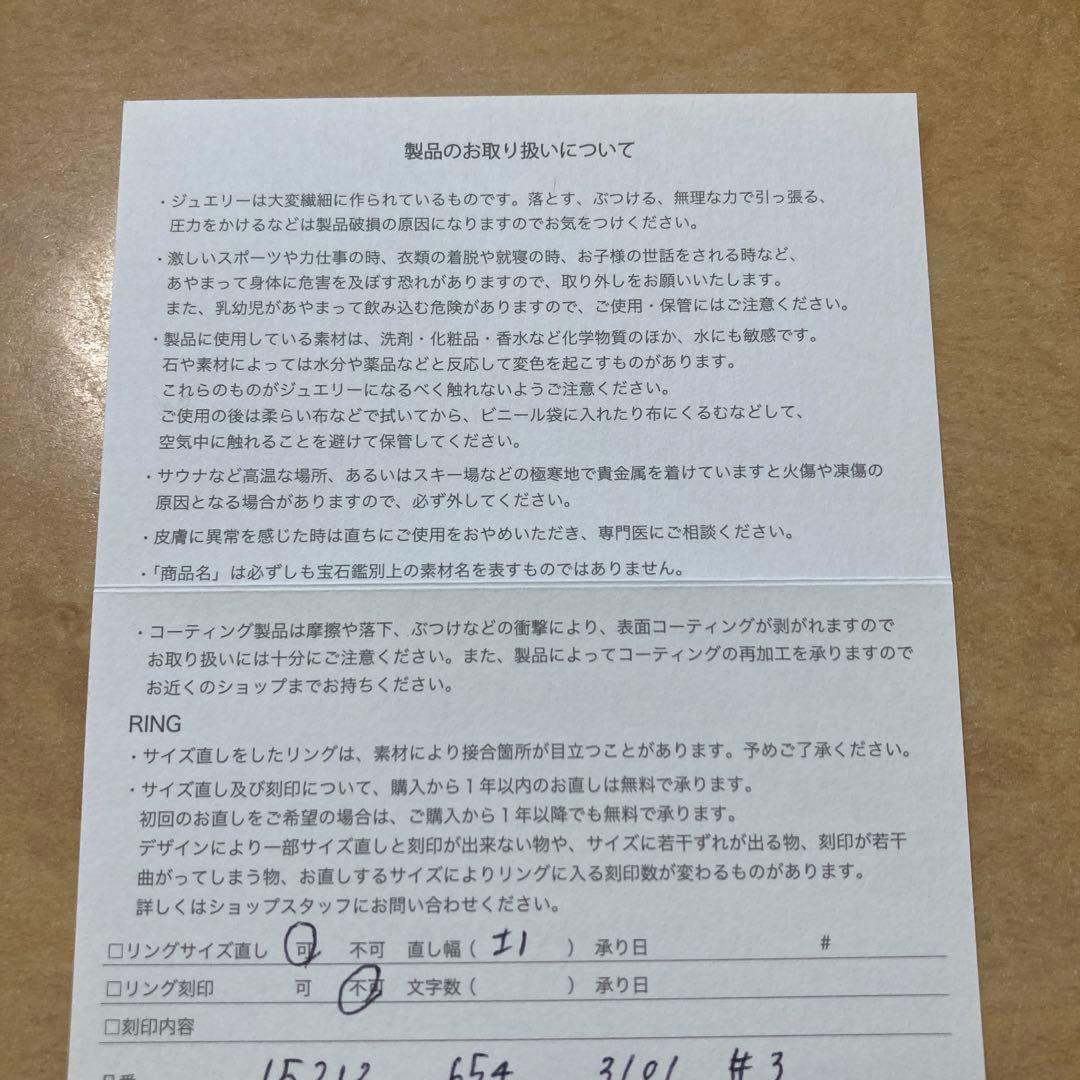 製品のお取り扱いについて
・ジュエリーは大変繊細に作られているものです。落とす、ぶつける、無理な力で引っ張る、
圧力をかけるなどは製品破損の原因になりますのでお気をつけください。
・激しいスポーツや力仕事の時、衣類の着脱や就寝の時、お子様の世話をされる時など、
あやまって身体に危害を及ぼす恐れがありますので、取り外しをお願いいたします。
また、乳幼児があやまって飲み込む危険がありますので、ご使用・保管にはご注意ください。
・製品に使用している素材は、洗剤・化粧品・香水など化学物質のほか、水にも敏感です。
石や素材によっては水分や薬品などと反応して変色を起こすものがあります。
これらのものがジュエリーになるべく触れないようご注意ください。
ご使用の後は柔らい布などで拭いてから、ビニール袋に入れたり布にくるむなどして、
空気中に触れることを避けて保管してください。
・サウナなど高温な場所、あるいはスキー場などの極寒地で貴金属を着けていますと火傷や凍傷の
原因となる場合がありますので、必ず外してください。
・皮膚に異常を感じた時は直ちにご使用をおやめいただき、専門医にご相談ください。
・「商品名」は必ずしも宝石鑑別上の素材名を表すものではありません。
・コーティング製品は摩擦や落下、ぶつけなどの衝撃により、表面コーティングが剥がれますので
お取り扱いには十分にご注意ください。また、製品によってコーティングの再加工を承りますので
お近くのショップまでお持ちください。
RING
・サイズ直しをしたリングは、素材により接合箇所が目立つことがあります。予めご了承ください。
・サイズ直し及び刻印について、購入から1年以内のお直しは無料で承ります。
初回のお直しをご希望の場合は、ご購入から1年以降でも無料で承ります。
デザインにより一部サイズ直しと刻印が出来ない物や、サイズに若干ずれが出る物、刻印が若干
曲がってしまう物、お直しするサイズによりリングに入る刻印数が変わるものがあります。
詳しくはショップスタッフにお問い合わせください。
□リングサイズ直し 可 不可 直し幅( ±1 ) 承り日 #
□リング刻印 可 不可 文字数( ) 承り日
□刻印内容
15212 654 3101 #3